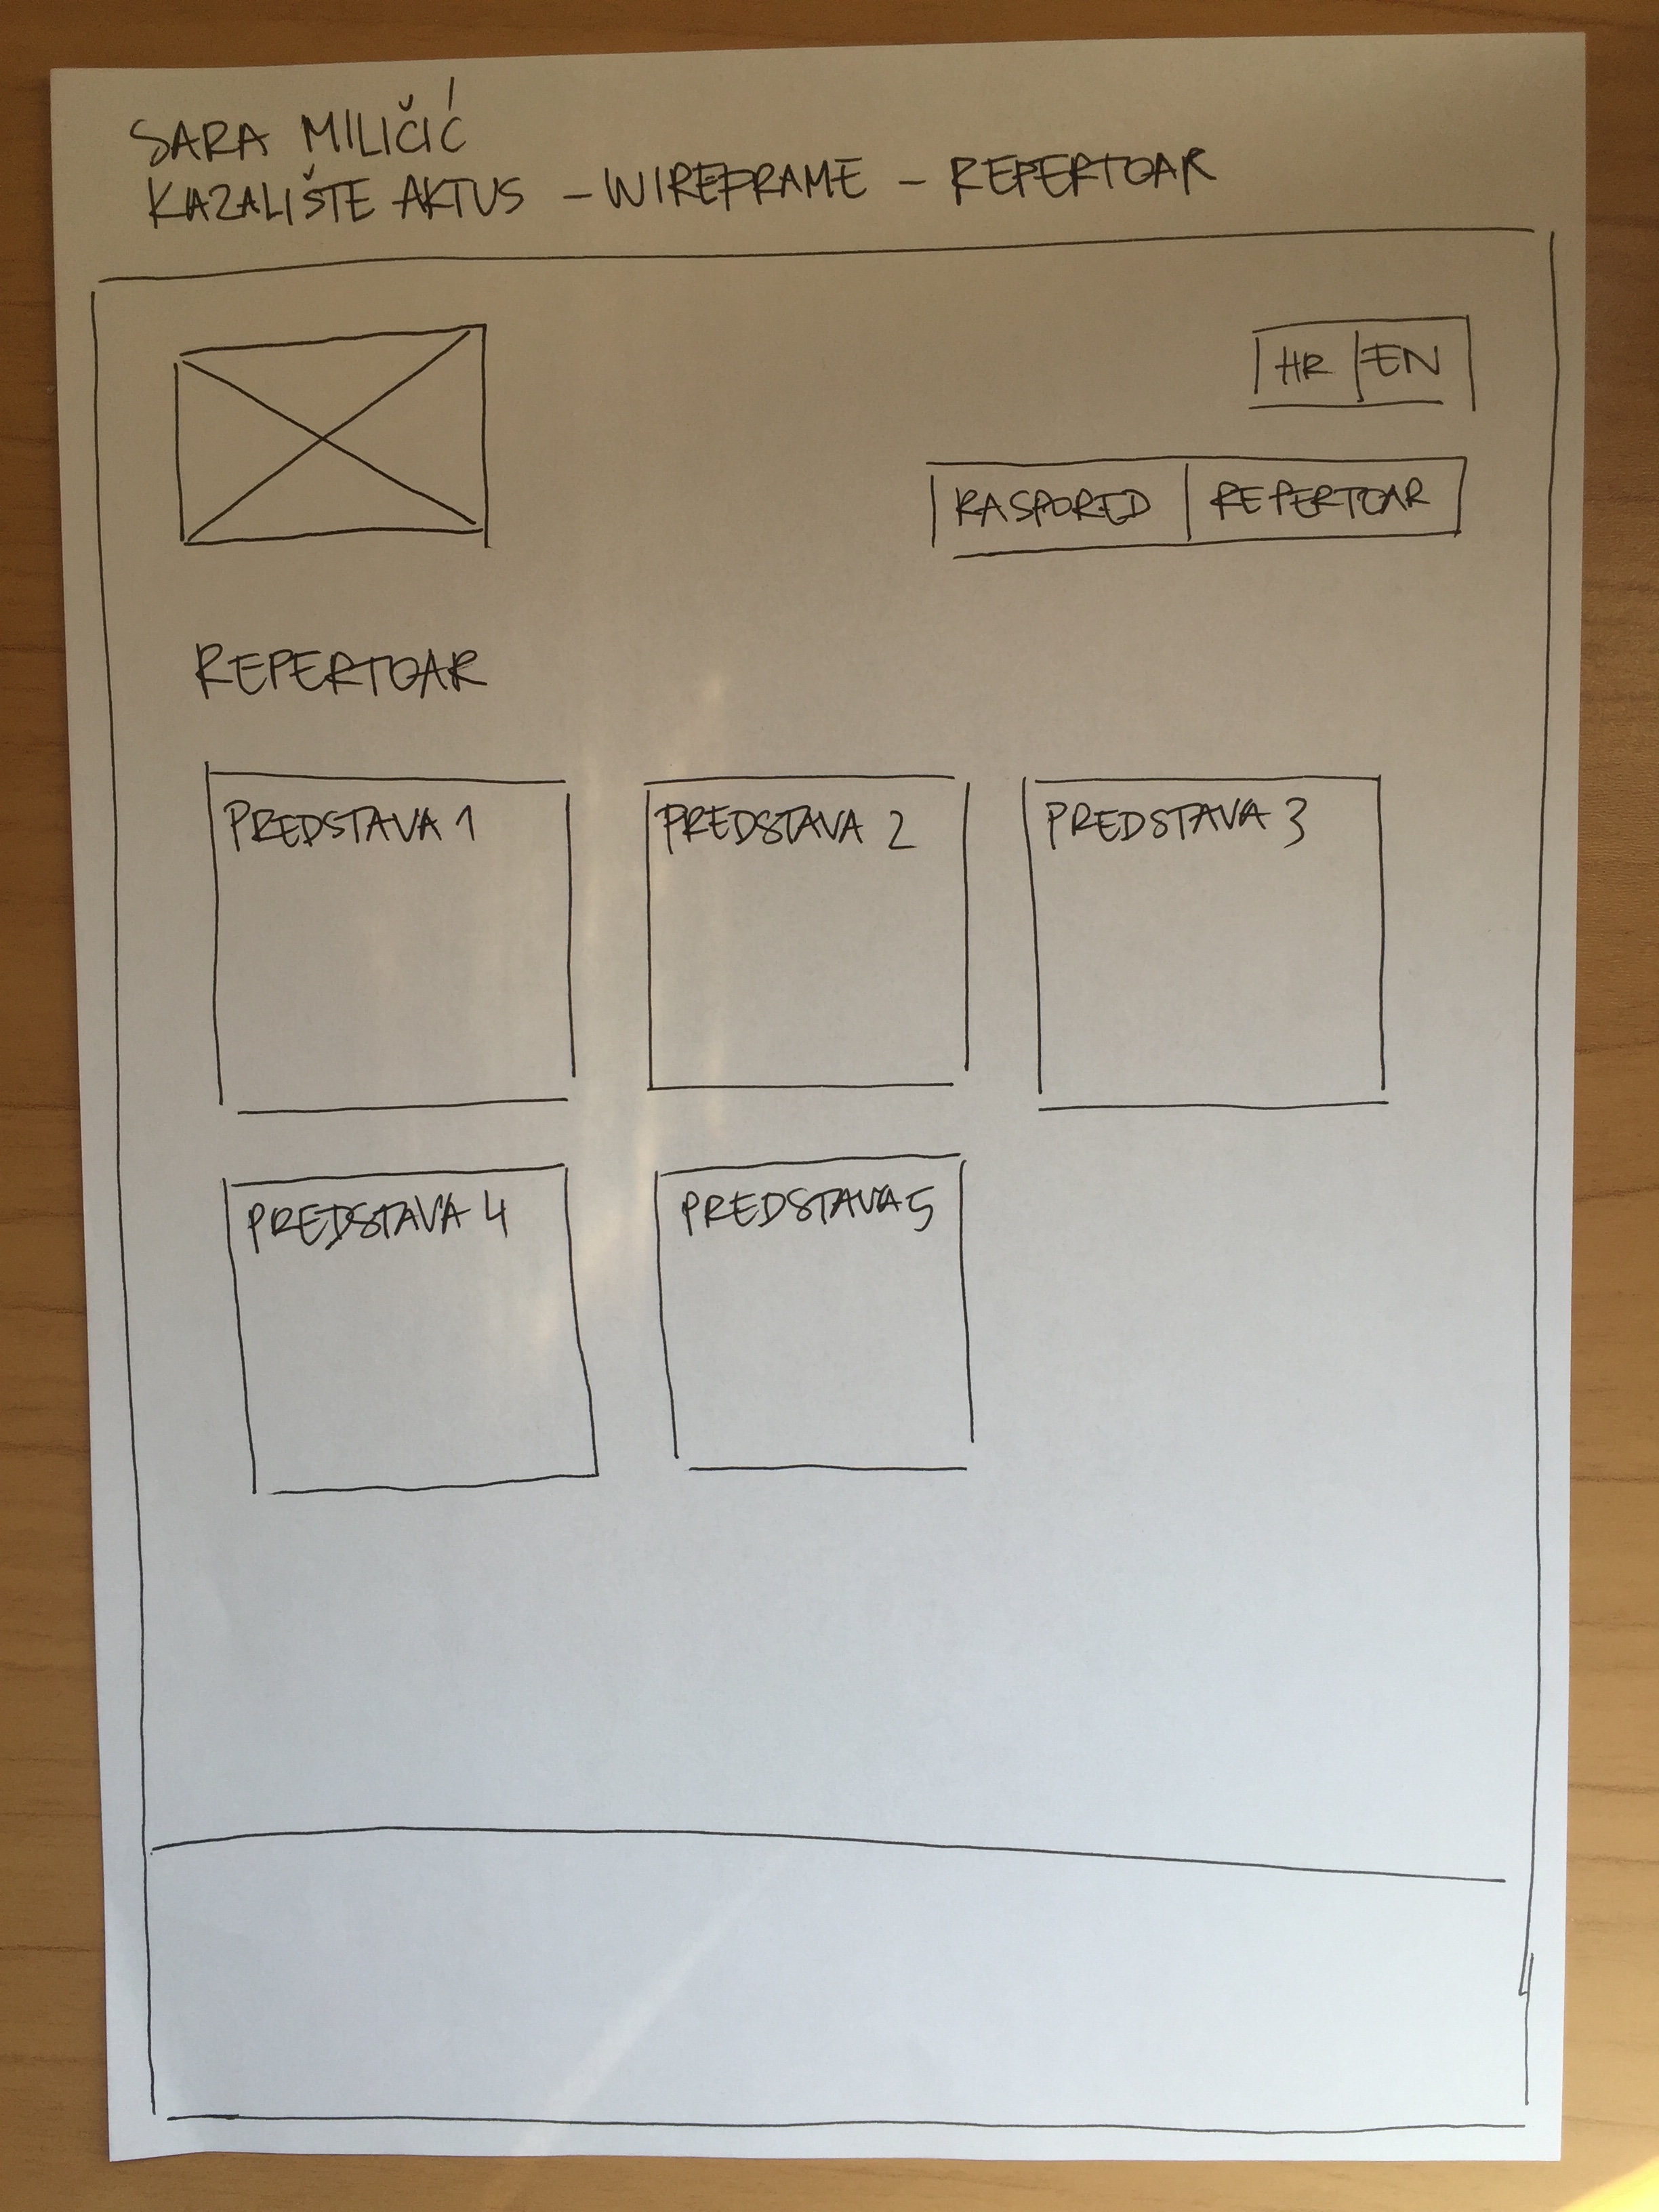 SARA MILIČIĆ
KAZALIŠTE AKTUS – WIREFRAME – REPERTOAR
HR | EN
RASPORED | REPERTOAR
REPERTOAR
PREDSTAVA 1 PREDSTAVA 2 PREDSTAVA 3
PREDSTAVA 4 PREDSTAVA 5